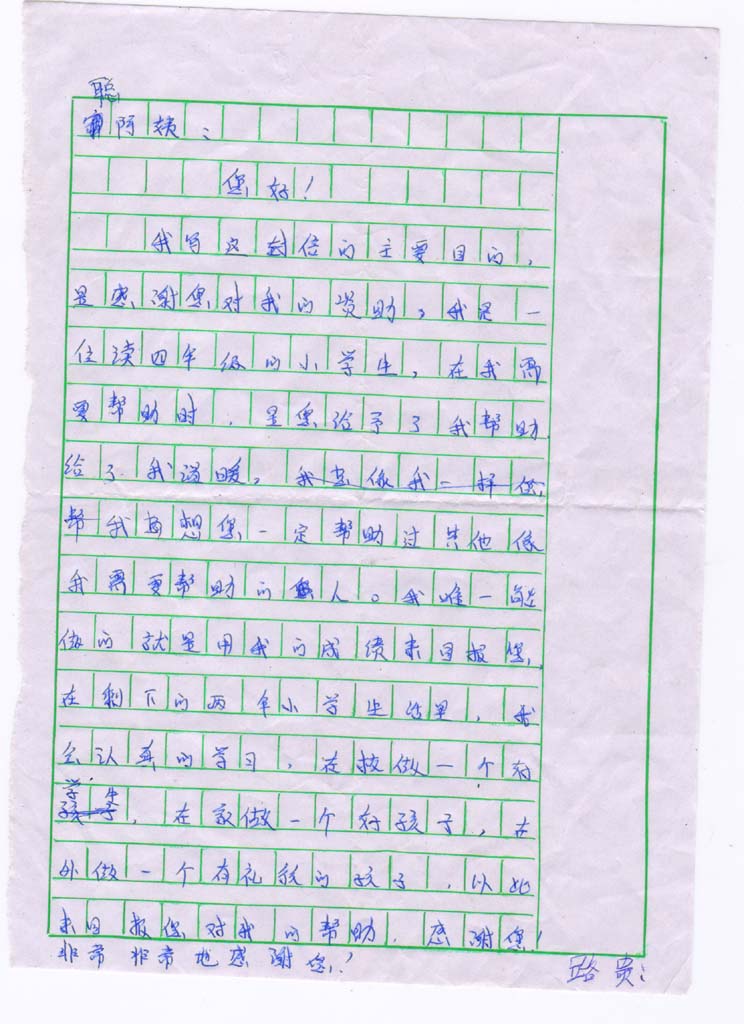 聪
阿姨:
您好!
我写这封信的主要目的,
是感谢您对我的资助,我是一
位读四年级的小学生,在我需
要帮助时,是您给予了我帮助
给了我温暖,我像我一样您,
帮我想您一定帮助过其他像
我需要帮助的人。我唯一能
做的就是用我的成绩来回报您,
在剩下的两年小学生活里,我
会认真的学习,在校做一个好
学生
孩子,在家做一个好孩子,在
外做一个有礼貌的孩子,以此
来回报您对我的帮助,感谢您!
非常非常地感谢您!
路贵